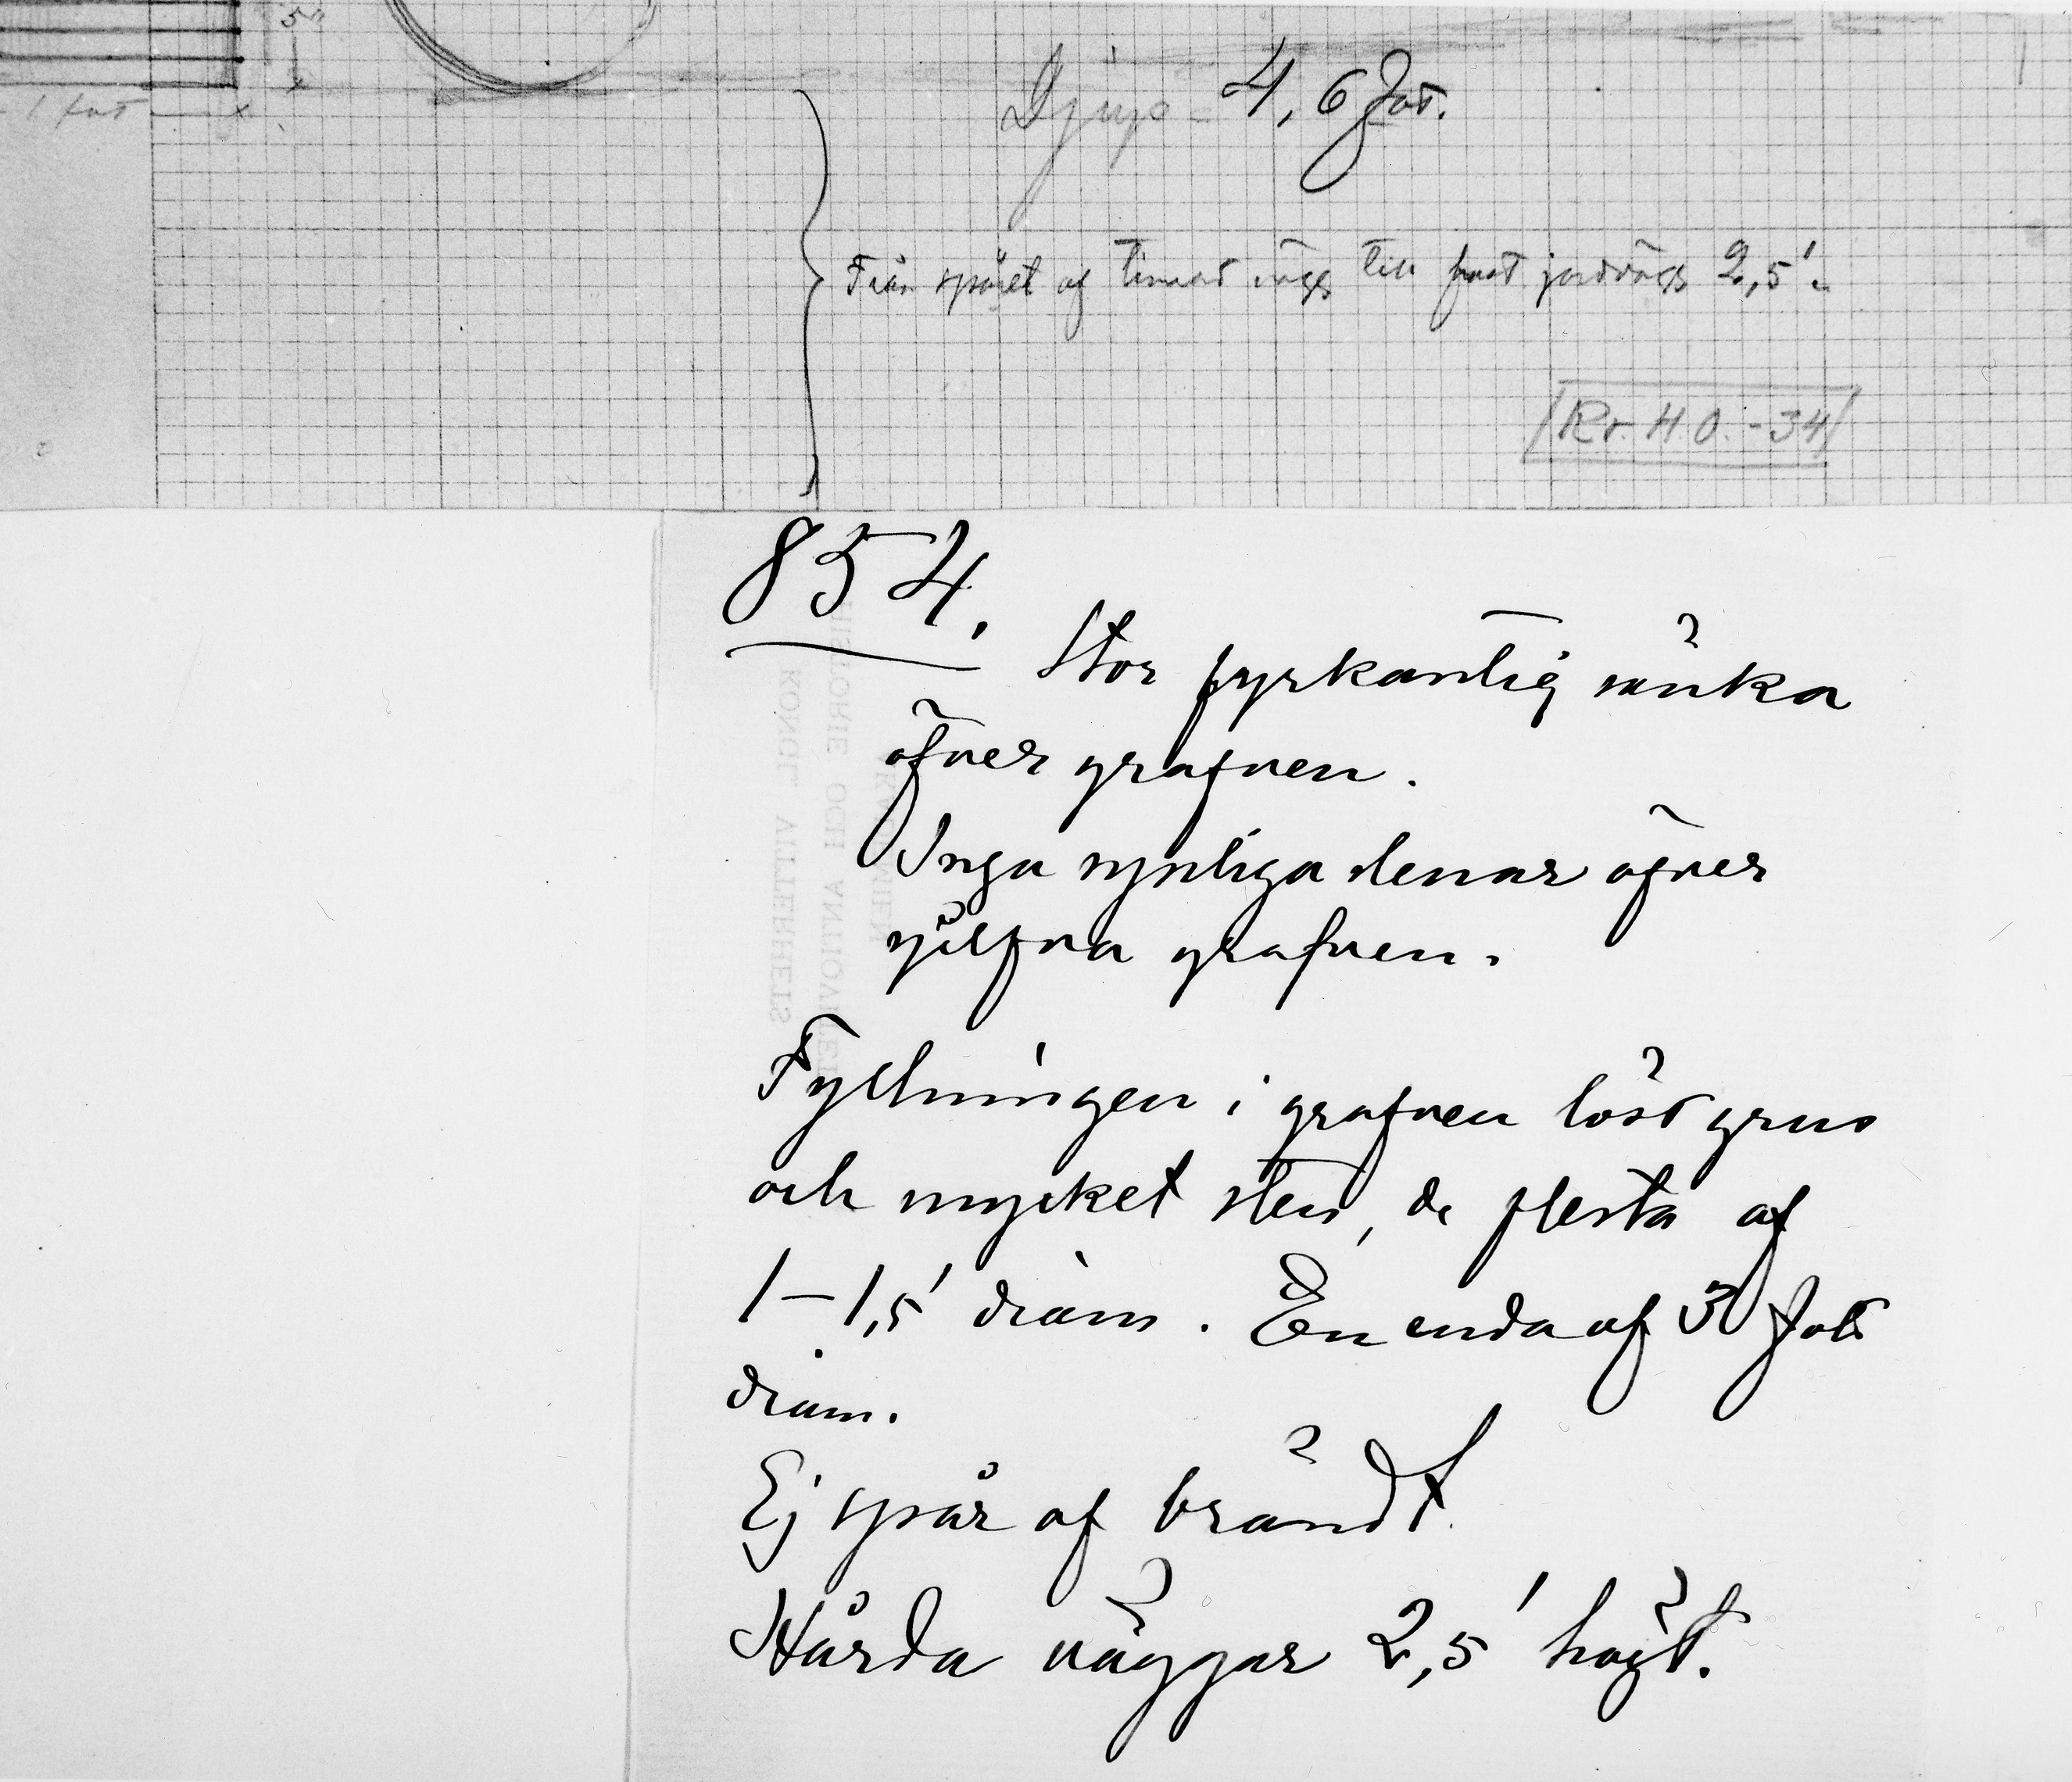 5"
1 fot
Djup = 4,6 fot.
Från spåret af timrad vägg till fast jordvägg 2,5'.
[Kr. H. O. -34]
854.
Stor fyrkantig sänka
öfver grafven.
Inga synliga stenar öfver
sjelfva grafven.
Fyllningen i grafven löst grus
och mycket sten, de flesta af
1–1,5' diam. En enda af 3 fots
diam.
Ej spår af brändt.
Hårda väggar 2,5' högt.
KONGL. VITTERHETS
HISTORIE OCH ANTIQVITETS
AKADEMIEN